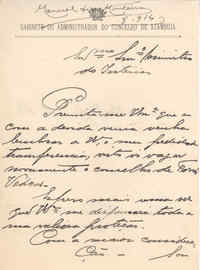 Manuel
GABINETE DO ADMINISTRADOR DO CONCELHO DE AZAMBUJA
Exmo Snr Ministro
do Interior
Permita-me V. Exa que
com a devida venia venha
lembrar a V. Exa o meu pedido de
transferencia, visto ir vagar
novamente o concelho de Torres
Vedras.
Espero mais uma vez
que V. Exa me dispensará toda a
sua valiosa proteção.
Com a maior considera-
ção Sou